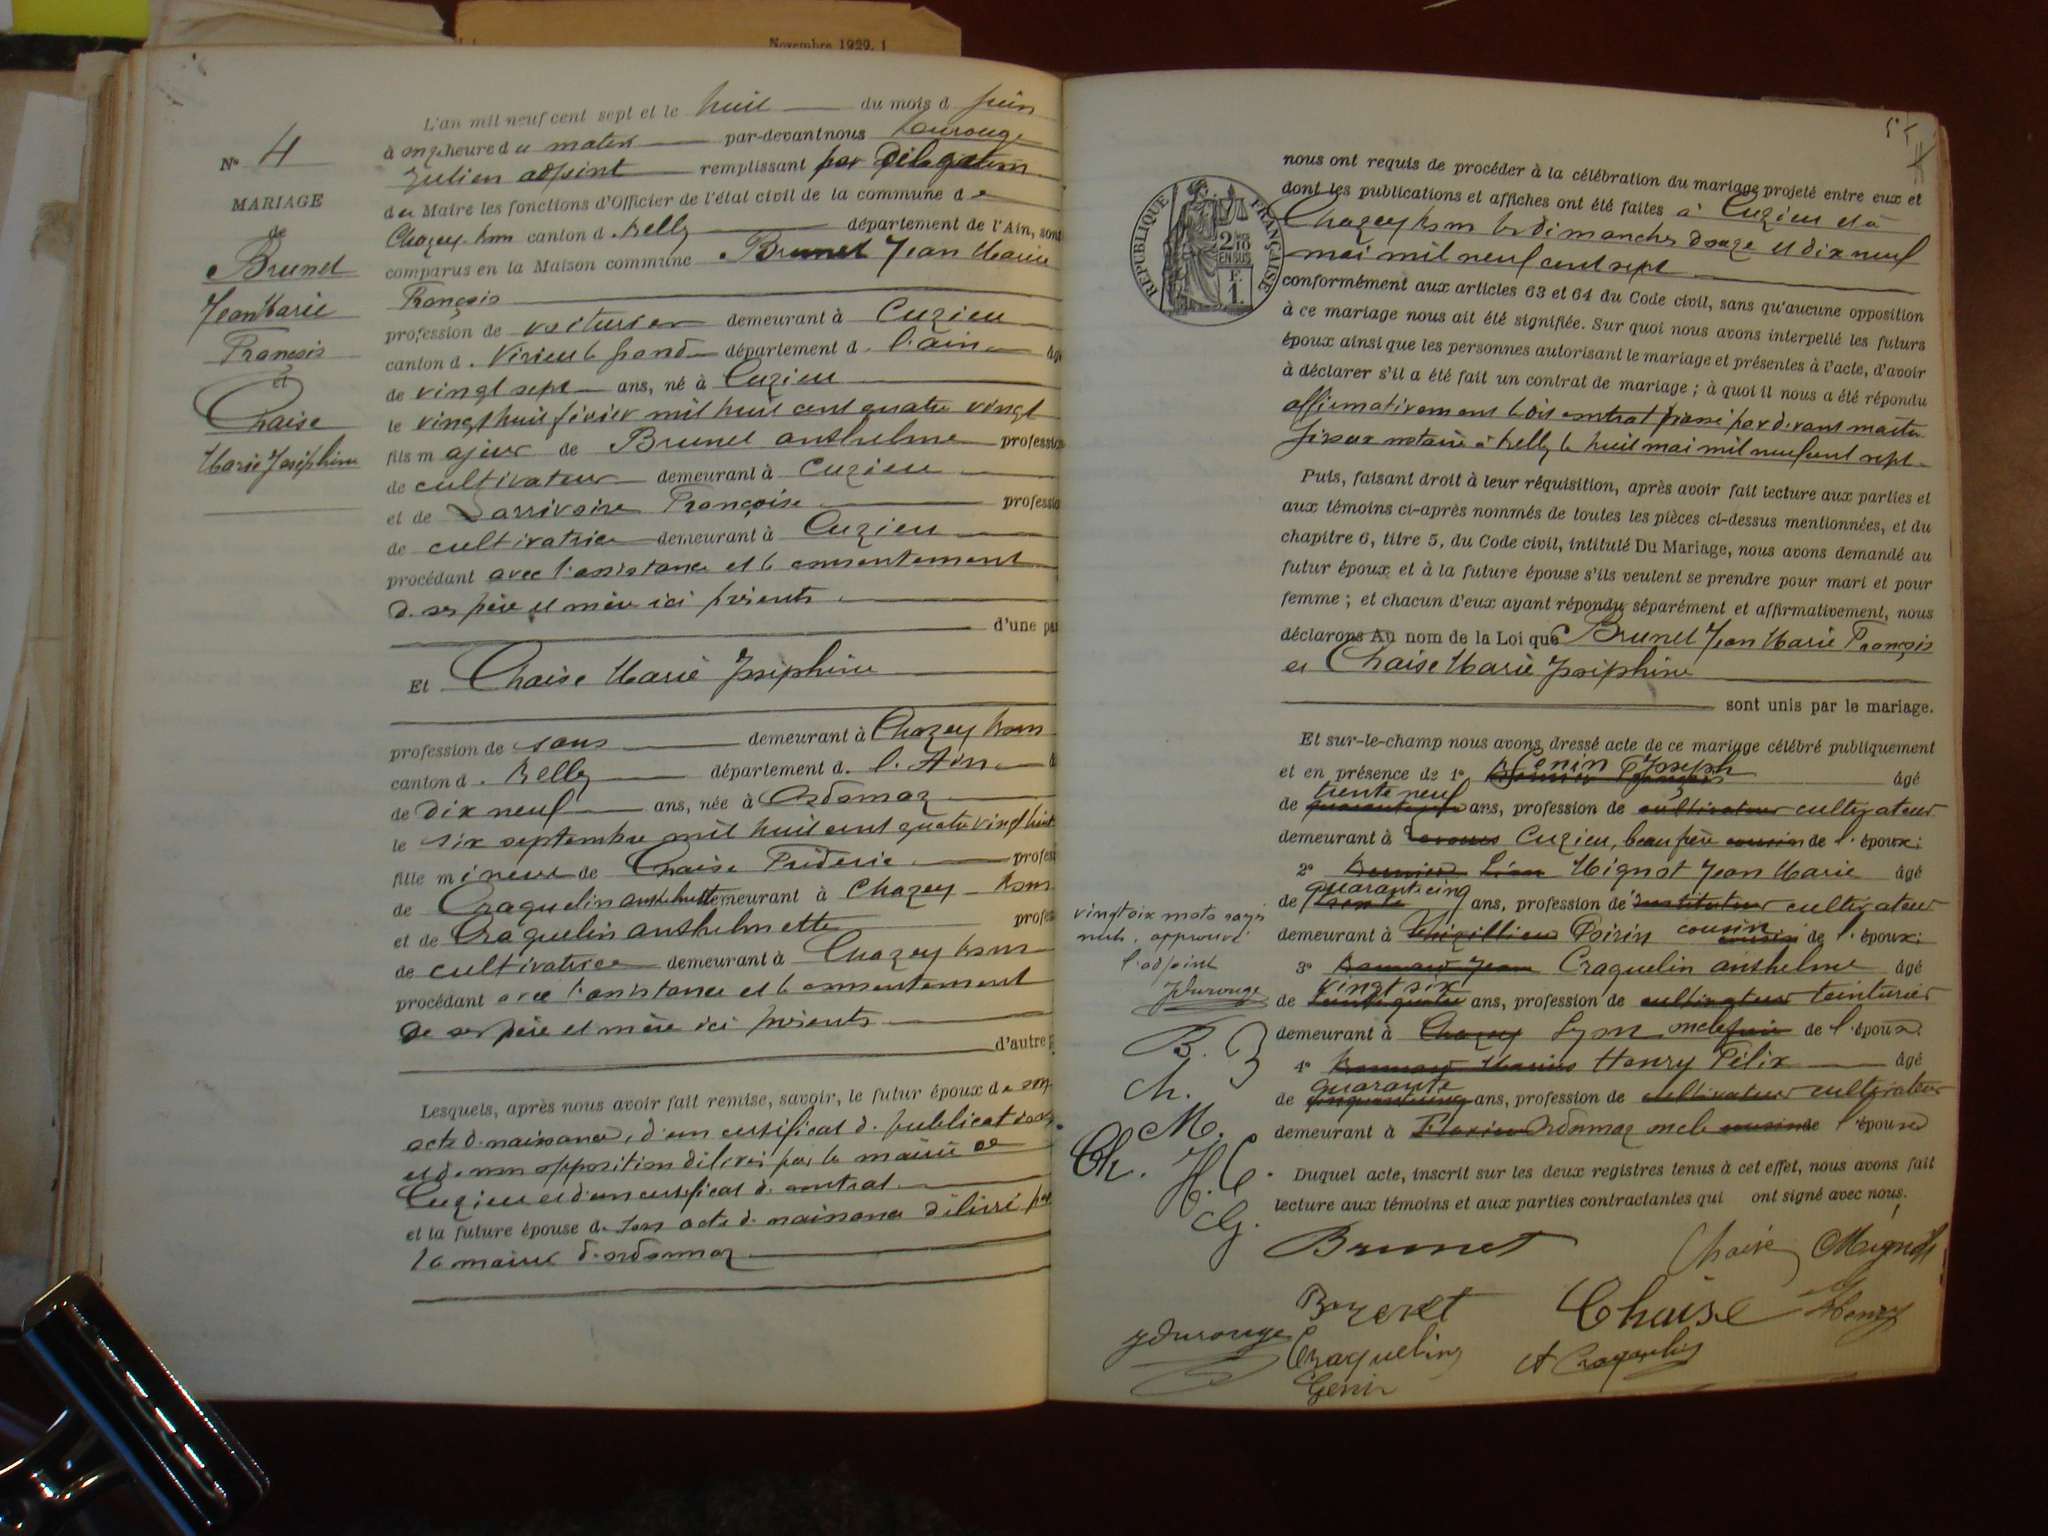 Novembre 1929. 1
N° 4
MARIAGE
de
Brunet
Jean Marie
François
et
Chaise
Marie Joséphine
L'an mil neuf cent sept et le huit du mois d juin
à onz heure d u matin par-devant nous Durouge
Julien adjoint remplissant par Délégation
du Maire les fonctions d'Officier de l'état civil de la commune d e
Chazey-Bons canton d. Belley département de l'Ain, sont
comparus en la Maison commune Brunet Jean Marie
François
profession de voiturier demeurant à Cuzieu
canton d. Virieu le grand département d. l'ain âgé
de vingt sept ans, né à Cuzieu
le vingt huit février mil huit cent quatre vingt
fils m ajeur de Brunet anthelme profession
de cultivateur demeurant à Cuzieu
et de Larrivoire Françoise profession
de cultivatrice demeurant à Cuzieu
procédant avec l'assistance et le consentement
de ses père et mère ici présents
d'une pa
Et Chaise Marie Joséphine
profession de sans demeurant à Chazey Bons
canton d. Belley département d. l'Ain
de Dix neuf ans, née à Ordonnaz
le six septembre mil huit cent quatre vingt huit
fille mineure de Chaise Fréderic profes
de Craquelin demeurant à Chazey-Bons
et de Craquelin anthelmette profes
de cultivatrice demeurant à Chazey Bons
procédant avec l'assistance et le consentement
de ses père et mère ici présents
d'autre p
Lesquels, après nous avoir fait remise, savoir, le futur époux de son
acte de naissance, d'un certificat de publications
et de non opposition délivrés par la mairie de
Cuzieu et d'un certificat de contrat.
et la future épouse de son acte de naissance délivré par
la mairie d'ordonnaz
55
RÉPUBLIQUE FRANÇAISE
2/10
EN SUS
F.
1.
nous ont requis de procéder à la célébration du mariage projeté entre eux et
dont les publications et affiches ont été faites à Cuzieu et à
Chazey Bons les dimanches douze et dix neuf
mai mil neuf cent sept
conformément aux articles 63 et 64 du Code civil, sans qu'aucune opposition
à ce mariage nous ait été signifiée. Sur quoi nous avons interpellé les futurs
époux ainsi que les personnes autorisant le mariage et présentes à l'acte, d'avoir
à déclarer s'il a été fait un contrat de mariage ; à quoi il nous a été répondu
affirmativement le dit contrat passé par devant maitre
notaire à Belley le huit mai mil neuf cent sept
Puis, faisant droit à leur réquisition, après avoir fait lecture aux parties et
aux témoins ci-après nommés de toutes les pièces ci-dessus mentionnées, et du
chapitre 6, titre 5, du Code civil, intitulé Du Mariage, nous avons demandé au
futur époux et à la future épouse s'ils veulent se prendre pour mari et pour
femme ; et chacun d'eux ayant répondu séparément et affirmativement, nous
déclarons Au nom de la Loi que Brunet Jean Marie François
et Chaise Marie Joséphine
sont unis par le mariage.
Et sur-le-champ nous avons dressé acte de ce mariage célébré publiquement
et en présence de 1° Genin Joseph âgé
de trente neuf ans, profession de cultivateur cultivateur
demeurant à Cuzieu, beau frère cousin de l'époux;
2° Mignot Jean Marie âgé
de quarante cinq trente ans, profession de instituteur cultivateur
demeurant à Poirin cousin de l'époux;
3° Craquelin anthelme âgé
de vingt six ans, profession de cultivateur teinturier
demeurant à Chazey Lyon oncle de l'épouse
4° Marius Henry Félix âgé
de quarante ans, profession de cultivateur cultivateur
demeurant à Ordonnaz oncle cousin de l'épouse
Duquel acte, inscrit sur les deux registres tenus à cet effet, nous avons fait
lecture aux témoins et aux parties contractantes qui ont signé avec nous.
vingt six mots rayés
nuls. approuvé
l'adjoint
JDurouge
B. J
Ch.
M.
Ch. H. C.
G.
Brunet
Chaise
Mignot
Chaise
Henry
JDurouge
Craquelin
A Craquelin
Genin